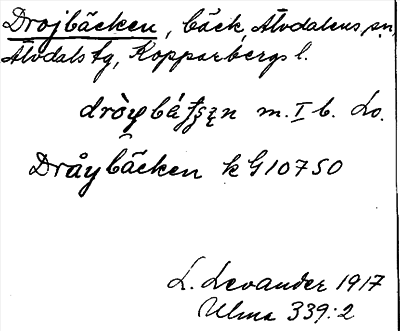 Drojbäcken, bäck, Älvdalens sn,
Älvdals tg, Kopparbergs l.
m. I b. Lo.
Dråybäcken k G10750
L. Levander 1917
Ulma 339:2